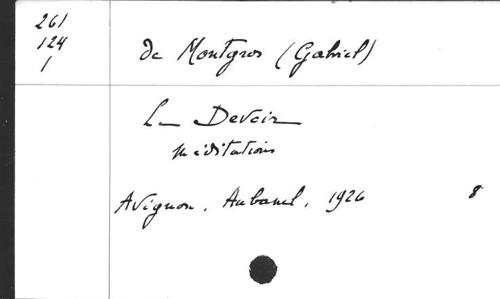 261
124
1
de Montgros (Gabriel)
Le Devoir
méditations
Avignon, Aubanel, 1926 8